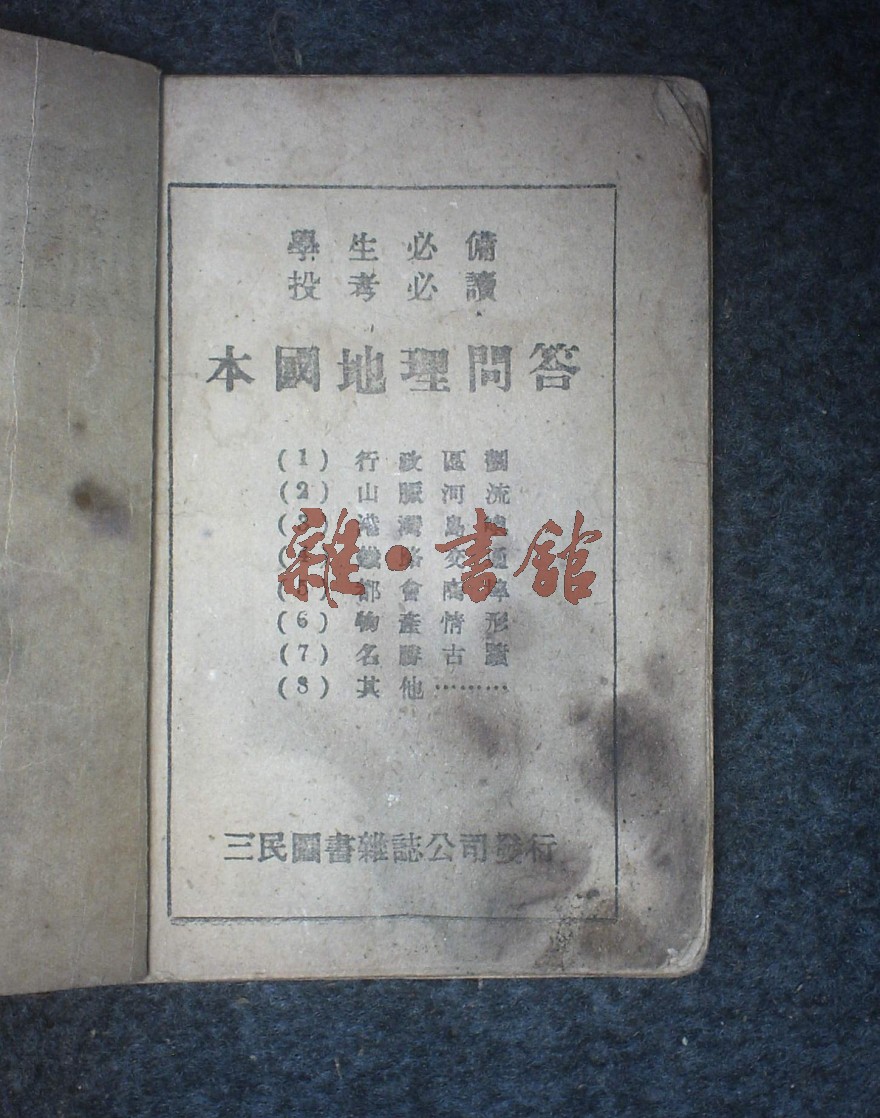 學生必備
投考必讀
本國地理問答
(1) 行政區劃
(2) 山脈河流
(3) 港灣島嶼
(4) 鐵路交通
(5) 都會商埠
(6) 物產情形
(7) 名勝古蹟
(8) 其他………
雜·書館
三民圖書雜誌公司發行